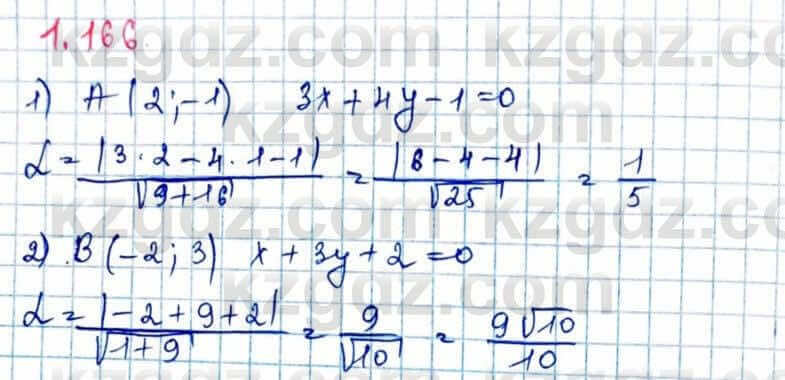 1.166
1) A(2;-1) 3x+4y-1=0
d = |3·2-4·1-1| / √(9+16) = |6-4-4| / √25 = 1/5
2) B(-2;3) x+3y+2=0
d = |-2+9+2| / √(1+9) = 9/√10 = 9√10/10
kzgdz.com
kzgdz.com
kzgdz.com
kzgdz.com